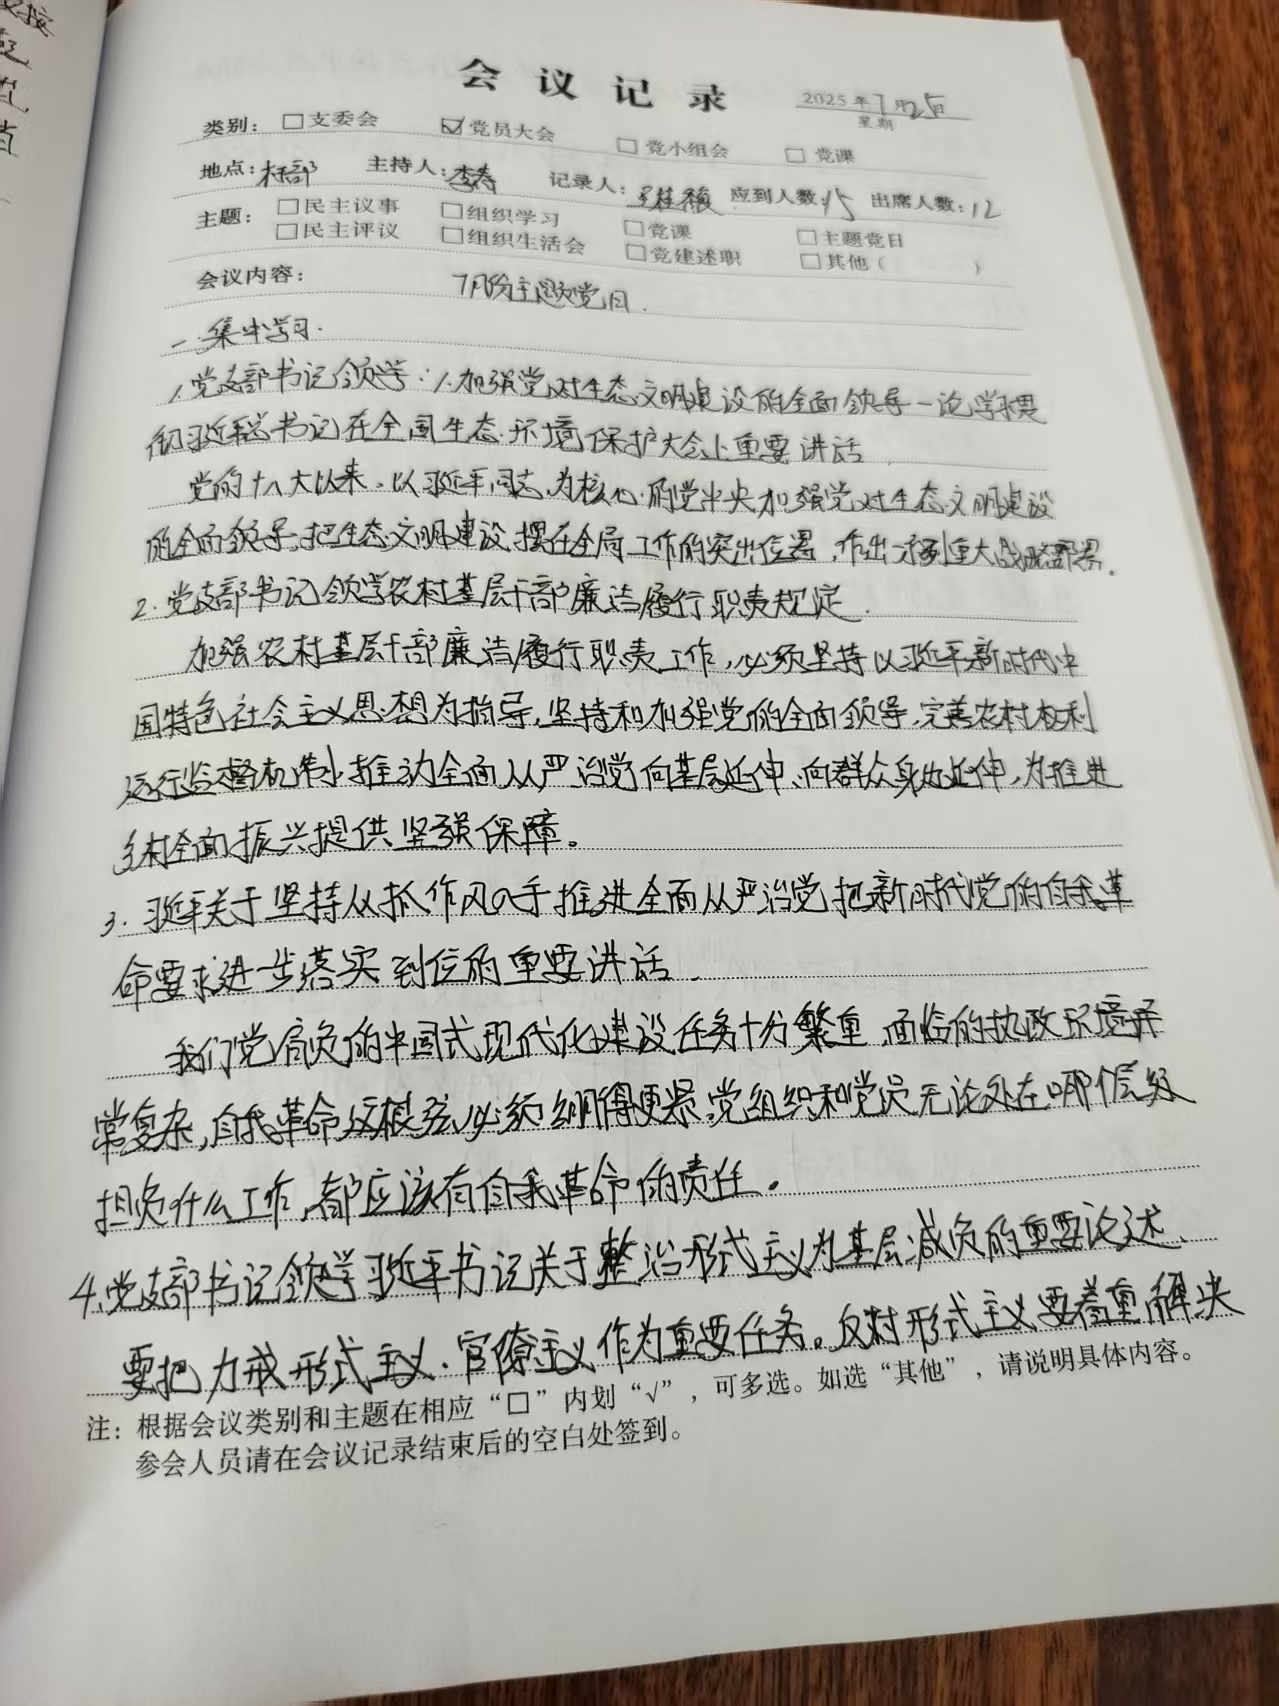 会议记录
2025年7月25日
星期
类别：□支委会 ☑党员大会 □党小组会 □党课
地点：村部 主持人：李寿 记录人：王桂馥 应到人数：15 出席人数：12
主题：□民主议事 □组织学习 □党课 □主题党日
□民主评议 □组织生活会 □党建述职 □其他（ ）
会议内容： 7月份主题党日.
一.集中学习.
1.党支部书记领学：1.加强党对生态文明建设的全面领导一论学习贯
彻习近平总书记在全国生态环境保护大会上重要讲话
党的十八大以来，以习近平同志为核心的党中央加强党对生态文明建设
的全面领导，把生态文明建设摆在全局工作的突出位置，作出一系列重大战略部署.
2.党支部书记领学农村基层干部廉洁履行职责规定.
加强农村基层干部廉洁履行职责工作，必须坚持以习近平新时代中
国特色社会主义思想为指导，坚持和加强党的全面领导，完善农村权利
运行监督机制，推动全面从严治党向基层延伸、向群众身边延伸，为推进
乡村全面振兴提供坚强保障。
3.习近平关于坚持从抓作风入手推进全面从严治党把新时代党的自我革
命要求进一步落实到位的重要讲话.
我们党肩负的中国式现代化建设任务十分繁重，面临的执政环境异
常复杂，自我革命这根弦必须绷得更紧，党组织和党员无论处在哪个层级
担负什么工作，都应该有自我革命的责任。
4、党支部书记领学习近平书记关于整治形式主义为基层减负的重要论述、
要把力戒形式主义、官僚主义作为重要任务。反对形式主义要着重解决
注：根据会议类别和主题在相应“□”内划“√”，可多选。如选“其他”，请说明具体内容。
参会人员请在会议记录结束后的空白处签到。